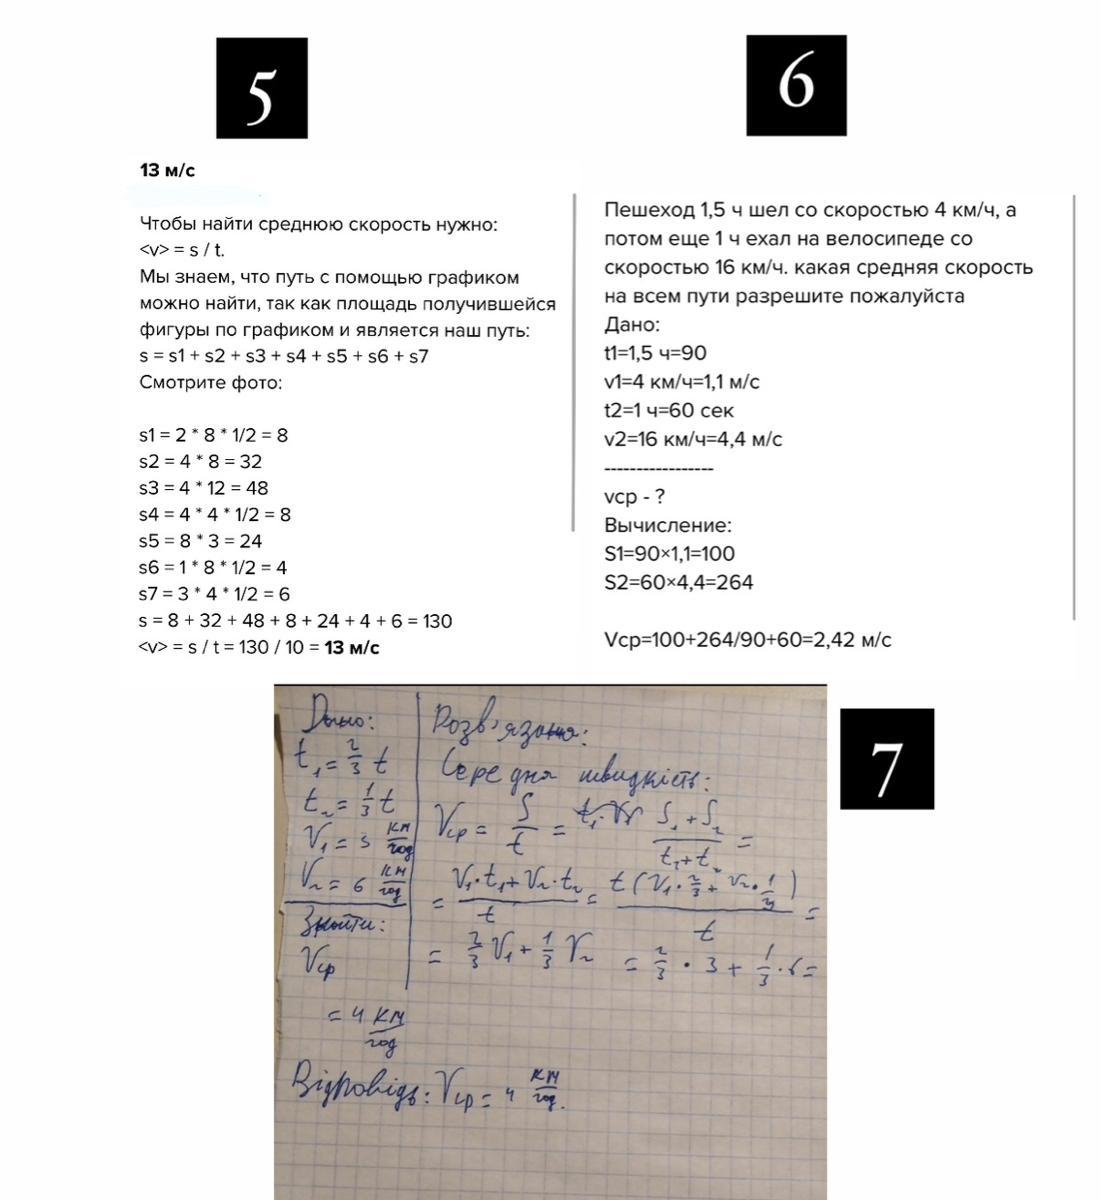 5
13 м/с
Чтобы найти среднюю скорость нужно:
<v> = s / t.
Мы знаем, что путь с помощью графиком
можно найти, так как площадь получившейся
фигуры по графиком и является наш путь:
s = s1 + s2 + s3 + s4 + s5 + s6 + s7
Смотрите фото:
s1 = 2 * 8 * 1/2 = 8
s2 = 4 * 8 = 32
s3 = 4 * 12 = 48
s4 = 4 * 4 * 1/2 = 8
s5 = 8 * 3 = 24
s6 = 1 * 8 * 1/2 = 4
s7 = 3 * 4 * 1/2 = 6
s = 8 + 32 + 48 + 8 + 24 + 4 + 6 = 130
<v> = s / t = 130 / 10 = 13 м/с
6
Пешеход 1,5 ч шел со скоростью 4 км/ч, а
потом еще 1 ч ехал на велосипеде со
скоростью 16 км/ч. какая средняя скорость
на всем пути разрешите пожалуйста
Дано:
t1=1,5 ч=90
v1=4 км/ч=1,1 м/с
t2=1 ч=60 сек
v2=16 км/ч=4,4 м/с
-----------------
vср - ?
Вычисление:
S1=90×1,1=100
S2=60×4,4=264
Vср=100+264/90+60=2,42 м/с
7
Дано:
t₁ = 2/3 t
t₂ = 1/3 t
V₁ = 3 км/год
V₂ = 6 км/год
Знайти:
Vср
Розв'язання:
Середня швидкість:
Vср = S/t = S₁+S₂/t₁+t₂ =
= V₁·t₁+V₂·t₂/t = t(V₁·2/3+V₂·1/3)/t =
= 2/3 V₁ + 1/3 V₂ = 2/3 · 3 + 1/3 · 6 =
= 4 км/год
Відповідь: Vср = 4 км/год.